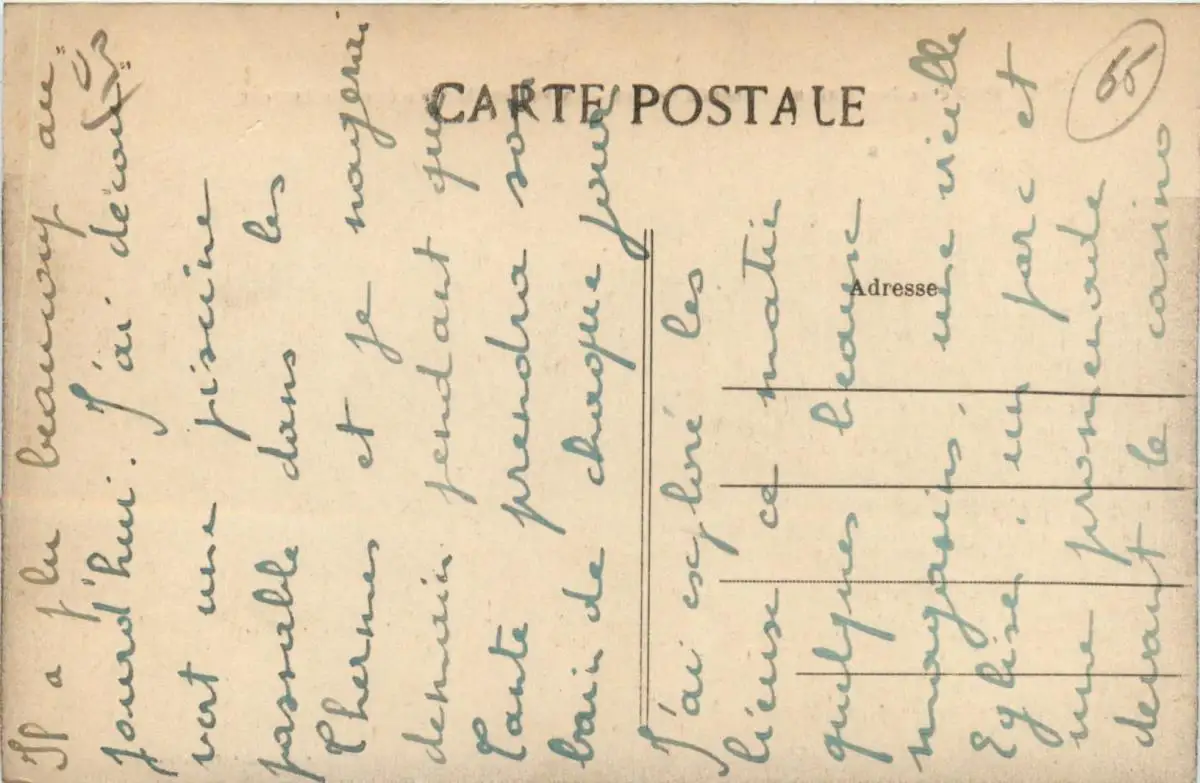 CARTE POSTALE
Adresse
55
Il a plu beaucoup au=
jourd'hui. J'ai décou=
vert une piscine
passable dans les
Thermes et je nagerai
demain pendant que
Tante prendra son
bain de chaque jour
J'ai exploré les
lieux ce matin
quelques beaux
magasins, une vieille
Eglise, un parc et
une promenade
devant le casino